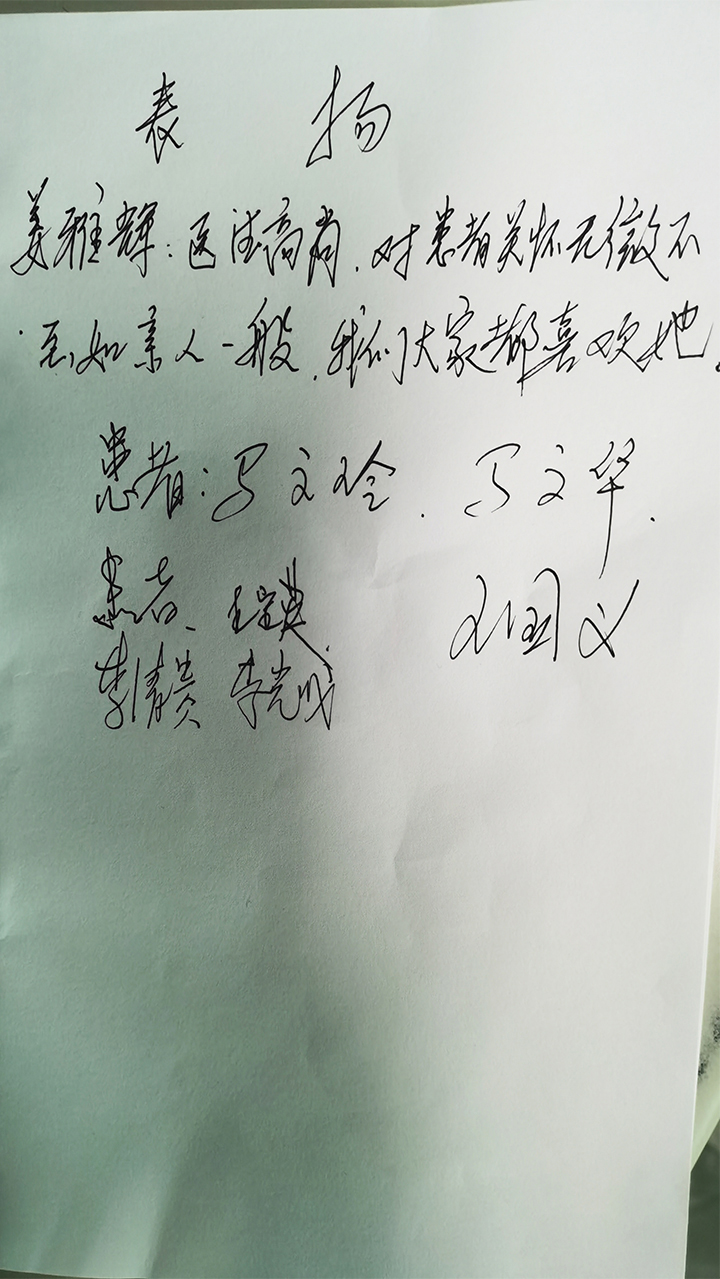 表 扬
姜雅辉：医德高尚，对患者关怀无微不
至，如亲人一般，我们大家都喜欢她。
患者：马文玲．马文华．
患者、王国义
李清贵 李光成